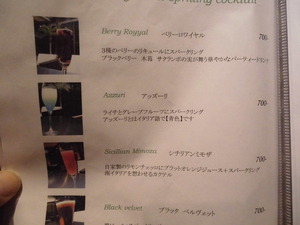 cocktail
Berry Royal ベリーロワイヤル 700-
3種のベリーのリキュールにスパークリング
ブラックベリー 木苺 サクランボの実が舞う華やかなパーティードリンク
Azzuri アッズーリ 700-
ライチとグレープフルーツにスパークリング
アッズーリとはイタリア語で【青色】です
Sicilian Mimosa シチリアンミモザ 700-
自家製のリモンチェッロにブラッドオレンジジュース+スパークリング
南イタリアを想わせるカクテル
Black velvet ブラック ベルヴェット 700-